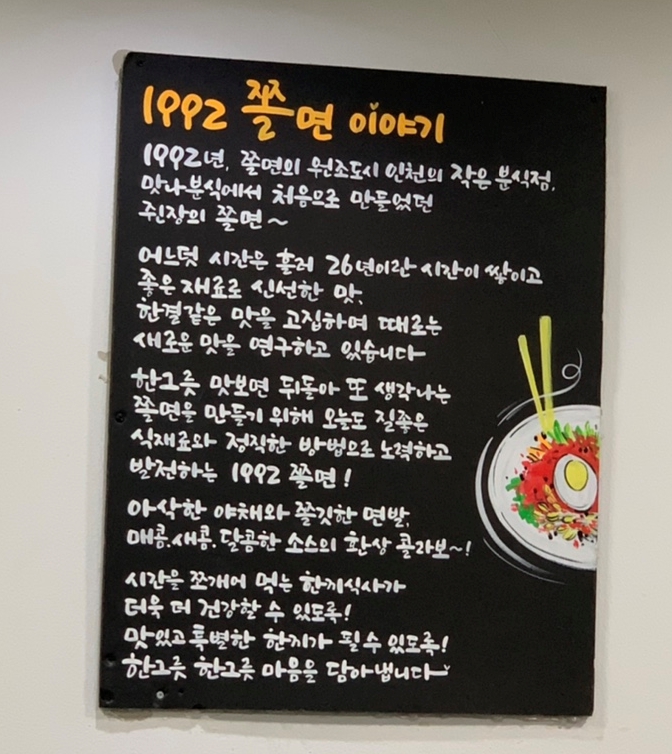 1992 쫄면 이야기
1992년, 쫄면의 원조도시 인천의 작은 분식점,
맛나분식에서 처음으로 만들었던
쥔장의 쫄면~
어느덧 시간은 흘러 26년이란 시간이 쌓이고
좋은 재료로 신선한 맛,
한결같은 맛을 고집하며 때로는
새로운 맛을 연구하고 있습니다
한그릇 맛보면 뒤돌아 또 생각나는
쫄면을 만들기 위해 오늘도 질좋은
식재료와 정직한 방법으로 노력하고
발전하는 1992 쫄면!
아삭한 야채와 쫄깃한 면발,
매콤.새콤.달콤한 소스의 환상 콜라보~!
시간을 쪼개어 먹는 한끼식사가
더욱 더 건강할 수 있도록!
맛있고 특별한 한끼가 될 수 있도록!
한그릇 한그릇 마음을 담아냅니다